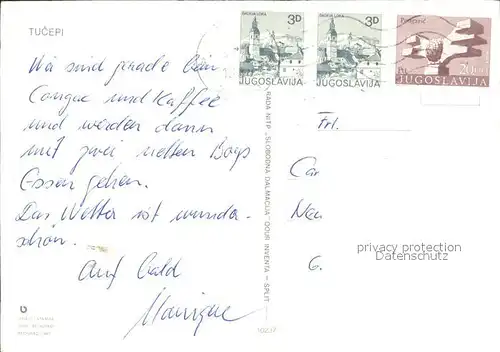 TUČEPI
Wir sind gerade beim
Cognac und Kaffee
und werden dann
mit zwei netten Boys
Essen gehen.
Das Wetter ist wunder-
schön.
Auf bald
Monique
ŠKOFJA LOKA
3D
JUGOSLAVIJA
ŠKOFJA LOKA
3D
JUGOSLAVIJA
JUGOSLAVIJA
"SLOBODNA DALMACIJA" OOUR INVENTA – SPLIT
Frl.
Car
G.
privacy protection
Datenschutz